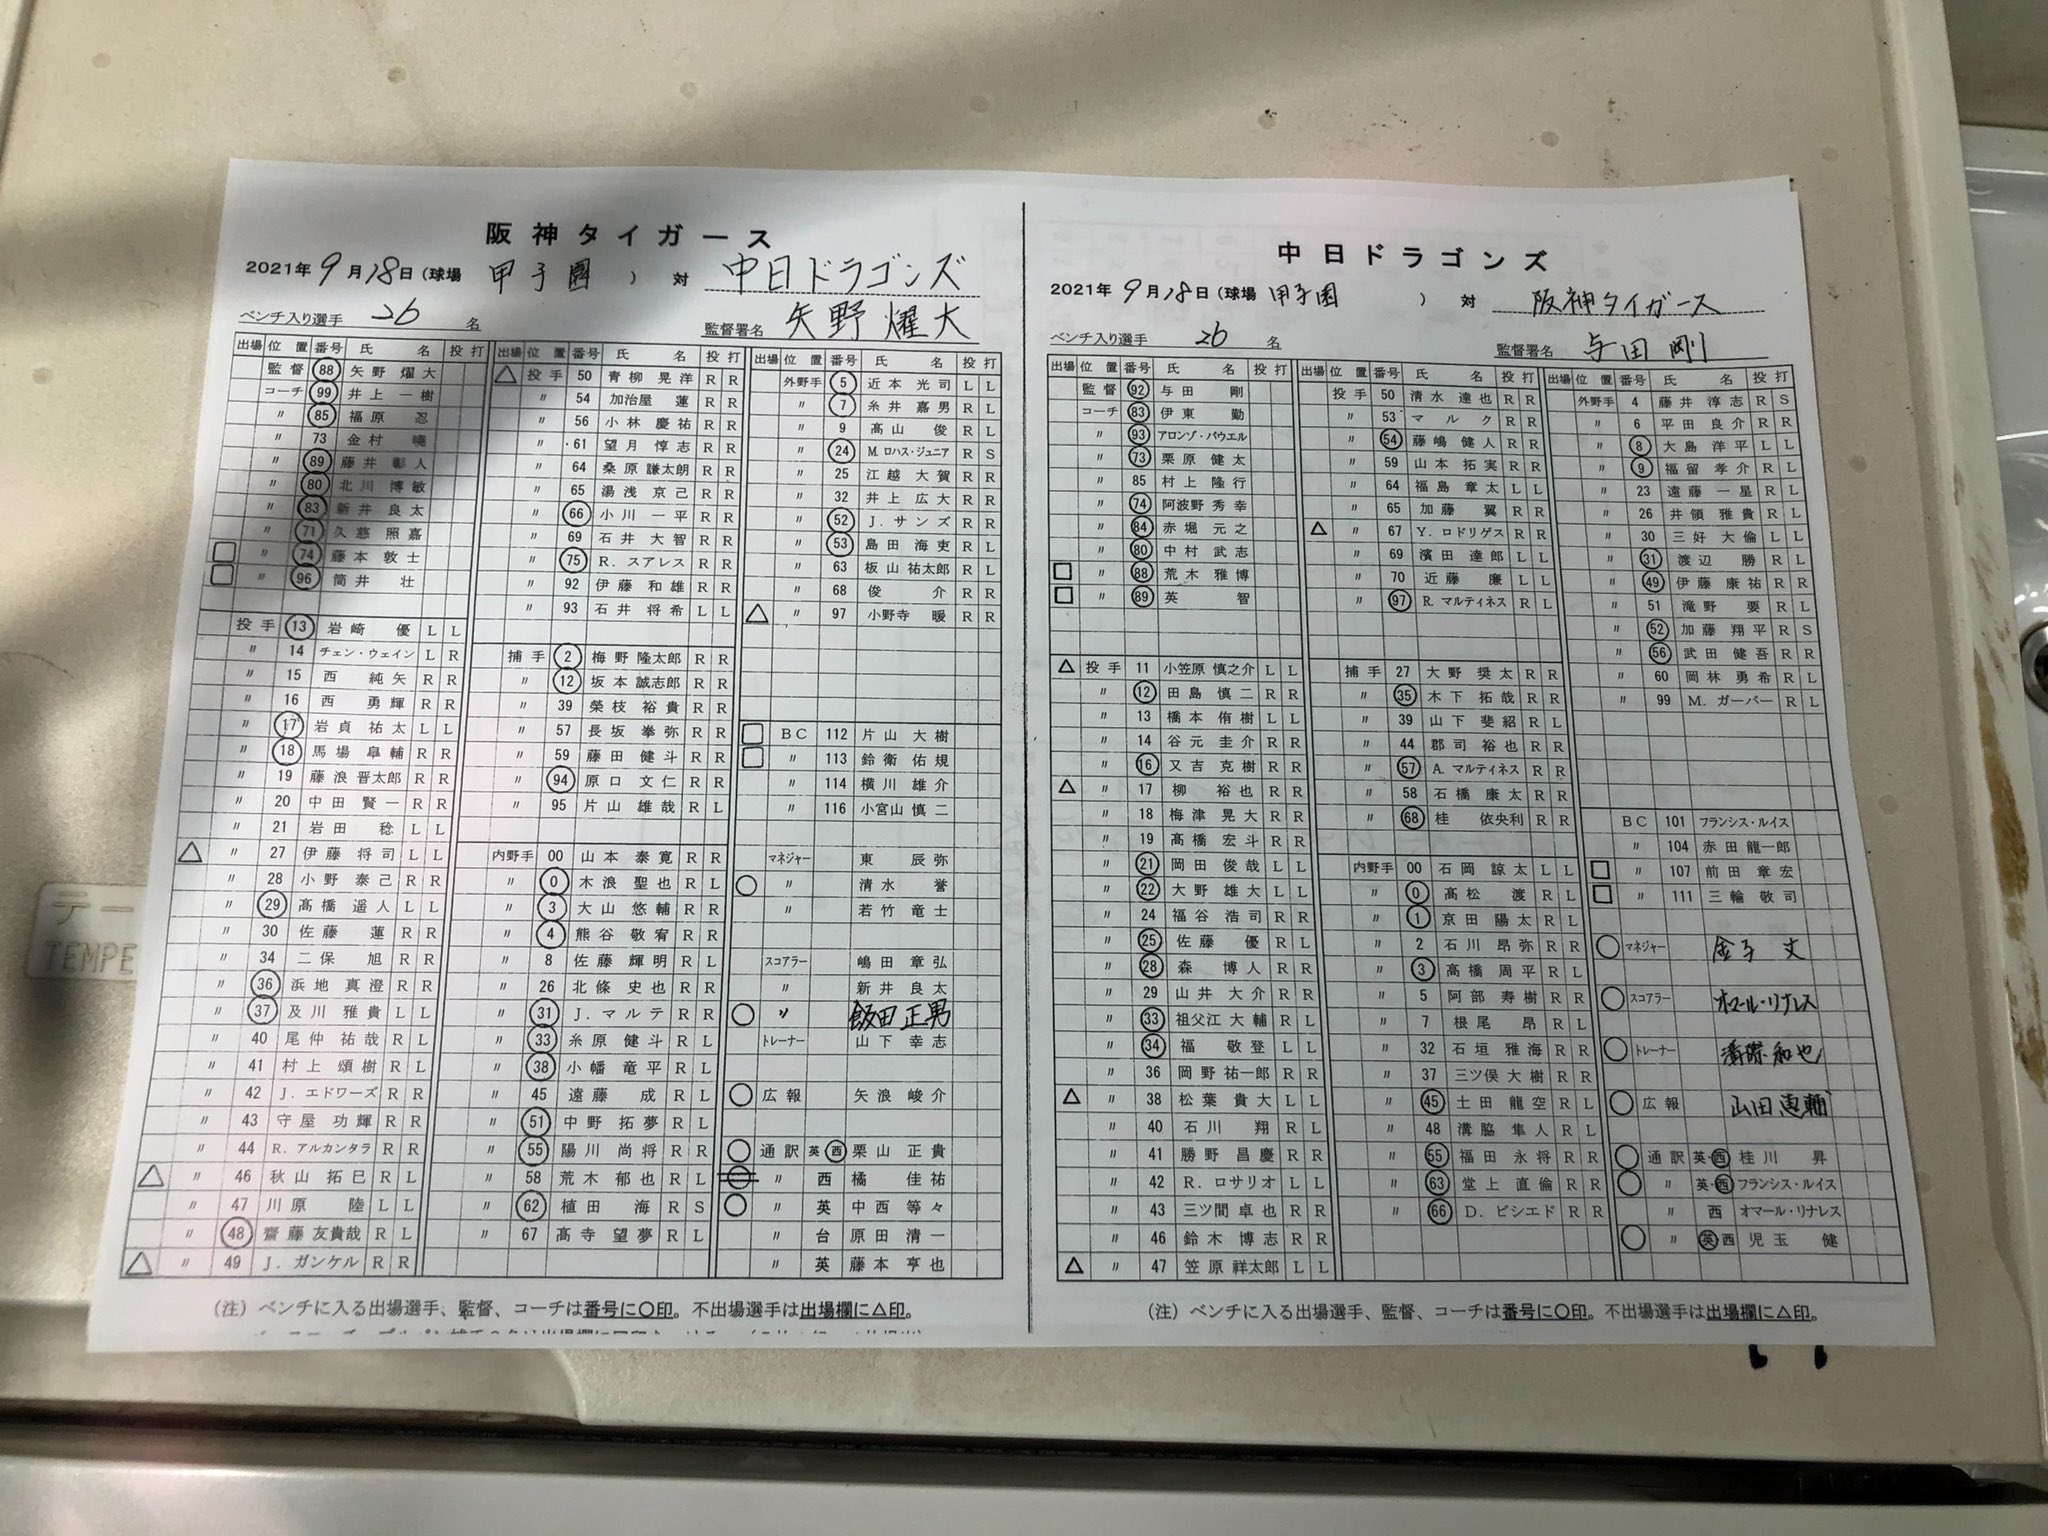 阪神タイガース
2021年 9月18日(球場 甲子園 ) 対 中日ドラゴンズ
ベンチ入り選手 26 名 監督署名 矢野燿大
出場 位置 番号 氏名 投 打
監督 88 矢野燿大
コーチ 99 井上一樹
〃 85 福原忍
〃 73 金村曉
〃 89 藤井彰人
〃 80 北川博敏
〃 83 新井良太
〃 71 久慈照嘉
□ 〃 74 藤本敦士
□ 〃 96 筒井壮
投手 13 岩崎優 L L
〃 14 チェン・ウェイン L R
〃 15 西純矢 R R
〃 16 西勇輝 R R
〃 17 岩貞祐太 L L
〃 18 馬場皐輔 R R
〃 19 藤浪晋太郎 R R
〃 20 中田賢一 R R
〃 21 岩田稔 L L
△ 〃 27 伊藤将司 L L
〃 28 小野泰己 R R
〃 29 髙橋遥人 L L
〃 30 佐藤蓮 R R
〃 34 二保旭 R R
〃 36 浜地真澄 R R
〃 37 及川雅貴 L L
〃 40 尾仲祐哉 R L
〃 41 村上頌樹 R L
〃 42 J.エドワーズ R R
〃 43 守屋功輝 R R
〃 44 R.アルカンタラ R R
△ 〃 46 秋山拓巳 R L
〃 47 川原陸 L L
〃 48 齋藤友貴哉 R L
△ 〃 49 J.ガンケル R R
出場 位置 番号 氏名 投 打
△ 投手 50 青柳晃洋 R R
〃 54 加治屋蓮 R R
〃 56 小林慶祐 R R
〃 61 望月惇志 R R
〃 64 桑原謙太朗 R R
〃 65 湯浅京己 R R
〃 66 小川一平 R R
〃 69 石井大智 R R
〃 75 R.スアレス R R
〃 92 伊藤和雄 R R
〃 93 石井将希 L L
捕手 2 梅野隆太郎 R R
〃 12 坂本誠志郎 R R
〃 39 榮枝裕貴 R R
〃 57 長坂拳弥 R R
〃 59 藤田健斗 R R
〃 94 原口文仁 R R
〃 95 片山雄哉 R L
内野手 00 山本泰寛 R R
〃 0 木浪聖也 R L
〃 3 大山悠輔 R R
〃 4 熊谷敬宥 R R
〃 8 佐藤輝明 R L
〃 26 北條史也 R R
〃 31 J.マルテ R R
〃 33 糸原健斗 R L
〃 38 小幡竜平 R L
〃 45 遠藤成 R L
〃 51 中野拓夢 R L
〃 55 陽川尚将 R R
〃 58 荒木郁也 R L
〃 62 植田海 R S
〃 67 髙寺望夢 R L
出場 位置 番号 氏名 投 打
外野手 5 近本光司 L L
〃 7 糸井嘉男 R L
〃 9 髙山俊 R L
〃 24 M.ロハス・ジュニア R S
〃 25 江越大賀 R R
〃 32 井上広大 R R
〃 52 J.サンズ R R
〃 53 島田海吏 R L
〃 63 板山祐太郎 R L
〃 68 俊介 R R
△ 〃 97 小野寺暖 R R
□ BC 112 片山大樹
□ 〃 113 鈴衛佑規
〃 114 横川雄介
〃 116 小宮山慎二
マネジャー 東辰弥
○ 〃 清水誉
〃 若竹竜士
スコアラー 嶋田章弘
〃 新井良太
○ 〃 飯田正男
トレーナー 山下幸志
○ 広報 矢浪峻介
○ 通訳 英 西 栗山正貴
〃 西 橘佳祐
○ 〃 英 中西等々
〃 台 原田清一
〃 英 藤本亨也
(注) ベンチに入る出場選手、監督、コーチは番号に○印。不出場選手は出場欄に△印。
中日ドラゴンズ
2021年 9月18日(球場 甲子園 ) 対 阪神タイガース
ベンチ入り選手 26 名 監督署名 与田剛
出場 位置 番号 氏名 投 打
監督 92 与田剛
コーチ 83 伊東勤
〃 93 アロンゾ・パウエル
〃 73 栗原健太
〃 85 村上隆行
〃 74 阿波野秀幸
〃 84 赤堀元之
〃 80 中村武志
□ 〃 88 荒木雅博
□ 〃 89 英智
△ 投手 11 小笠原慎之介 L L
〃 12 田島慎二 R R
〃 13 橋本侑樹 L L
〃 14 谷元圭介 R R
〃 16 又吉克樹 R R
△ 〃 17 柳裕也 R R
〃 18 梅津晃大 R R
〃 19 髙橋宏斗 R R
〃 21 岡田俊哉 L L
〃 22 大野雄大 L L
〃 24 福谷浩司 R R
〃 25 佐藤優 R L
〃 28 森博人 R R
〃 29 山井大介 R R
〃 33 祖父江大輔 R L
〃 34 福敬登 L L
〃 36 岡野祐一郎 R R
△ 〃 38 松葉貴大 L L
〃 40 石川翔 R L
〃 41 勝野昌慶 R R
〃 42 R.ロサリオ L L
〃 43 三ツ間卓也 R R
〃 46 鈴木博志 R R
△ 〃 47 笠原祥太郎 L L
出場 位置 番号 氏名 投 打
投手 50 清水達也 R R
〃 53 マルク R R
〃 54 藤嶋健人 R R
〃 59 山本拓実 R R
〃 64 福島章太 L L
〃 65 加藤翼 R R
△ 〃 67 Y.ロドリゲス R R
〃 69 濱田達郎 L L
〃 70 近藤廉 L L
〃 97 R.マルティネス R L
捕手 27 大野奨太 R R
〃 35 木下拓哉 R R
〃 39 山下斐紹 R L
〃 44 郡司裕也 R R
〃 57 A.マルティネス R R
〃 58 石橋康太 R R
〃 68 桂依央利 R R
内野手 00 石岡諒太 L L
〃 0 髙松渡 R L
〃 1 京田陽太 R L
〃 2 石川昂弥 R R
〃 3 高橋周平 R L
〃 5 阿部寿樹 R R
〃 7 根尾昂 R L
〃 32 石垣雅海 R R
〃 37 三ツ俣大樹 R R
〃 45 土田龍空 R L
〃 48 溝脇隼人 R L
〃 55 福田永将 R R
〃 63 堂上直倫 R R
〃 66 D.ビシエド R R
出場 位置 番号 氏名 投 打
外野手 4 藤井淳志 R S
〃 6 平田良介 R R
〃 8 大島洋平 L L
〃 9 福留孝介 R L
〃 23 遠藤一星 R L
〃 26 井領雅貴 R L
〃 30 三好大倫 L L
〃 31 渡辺勝 R L
〃 49 伊藤康祐 R R
〃 51 滝野要 R L
〃 52 加藤翔平 R S
〃 56 武田健吾 R R
〃 60 岡林勇希 R L
〃 99 M.ガーバー R L
BC 101 フランシス・ルイス
〃 104 赤田龍一郎
□ 〃 107 前田章宏
□ 〃 111 三輪敬司
○ マネジャー 金子丈
○ スコアラー オマール・リナレス
○ トレーナー 和也
○ 広報 山田
○ 通訳 英・西 桂川昇
○ 〃 英・西 フランシス・ルイス
〃 西 オマール・リナレス
○ 〃 英 西 児玉健
(注) ベンチに入る出場選手、監督、コーチは番号に○印。不出場選手は出場欄に△印。
テー
TEMPE